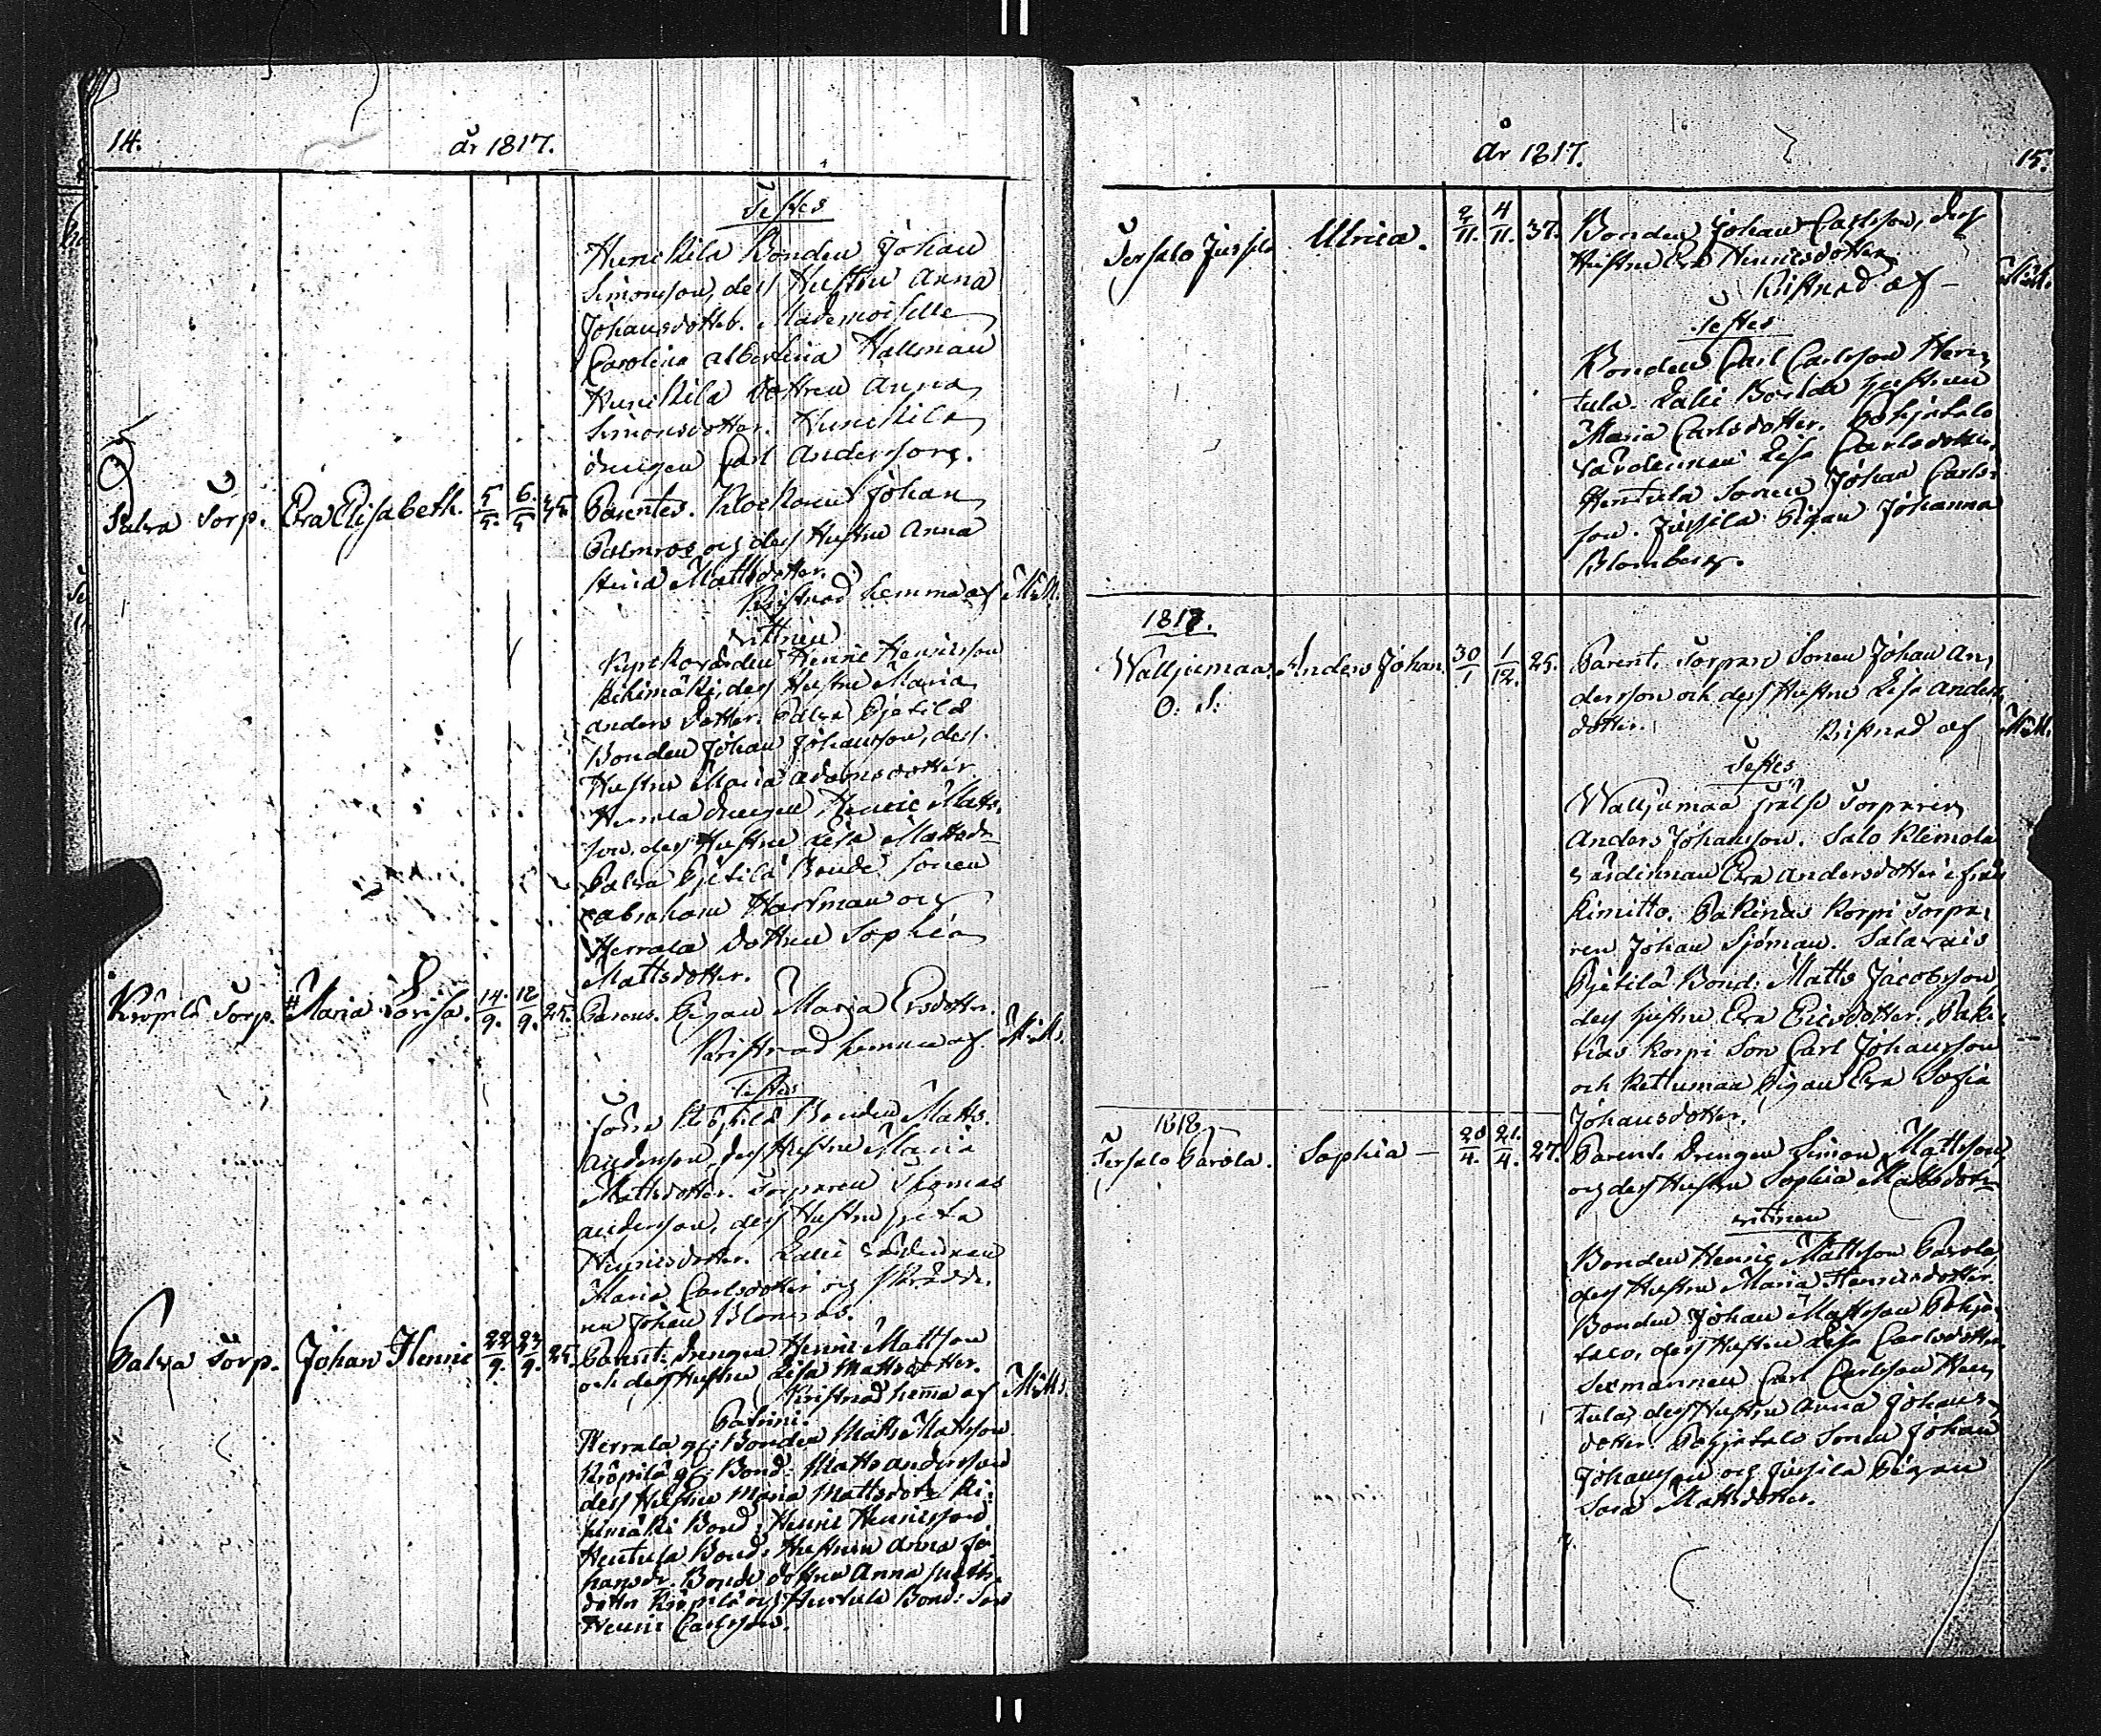 14.
år 1817.
Testes
Hunikkila Bonden Johan
Simonsson, dess Hustru Anna
Johansdotter. Mademoiselle
Carolina Albertina Hallman
Hunikkila dottren Anna
Simonsdotter. Hunikkila
drengen Carl Andersson.
Palva Torp. Eva Elisabeth. 5/5. 6./5 Parentes. Klockaren Johan
Palmros och dess Hustru Anna
Stina Mattsdotter.
Kristnad hemma af M:M.
vittnen
Henric Henricsson
Kihimäki, dess Hustru Maria
Anders dotter. Palva Pjetilä
Bonden Johan Johansson, dess
Hustru Maria Adamsdotter
Herrala drengen Henric Matts-
son, dess Hustru Lisa Mattsdr
Palva Pjetilä Bonde sonen
Abraham Hartman och
Herrala dottren Sophia
Mattsdotter.
Kröpilä Torp. # Maria Lovisa. 14./9. 18/9. 25. Parens. Pigan Maria Ersdotter.
Kristnad hemma af M:M.
Testes
Kröpilä Bonden Matts
Andersson, dess Hustru Maria
Mattsdotter. Torparen Thomas
Andersson, dess Hustru Greta
Henricsdotter. Lalli värdinnan
Maria Carlsdotter och skrädda-
ren Johan Blomros.
Palva Torp. Johan Henric 22/9. 23/9. 25. Parent. drengen Henric Mattsson
och dess Hustru Lisa Mattsdotter.
Kristnad hemma af M:M.
Patrini.
Herrala gf: Bonden Matts Mattsson
Kröpilä gf: Bond: Matts Andersson
dess Hustru Maria Mattsdotr Ki-
himäki Bond: Henric Henricsson
Hentula Bond: Hustrun Anna Jo-
hansdr. Bonde dottren Anna Matts-
dotter Kröpilä och Hentula Bond: Son
Henric Carlsson.
år 1817.
15.
Tersalo Jussila Ulrica. 2/11. 4/11. 37. Bonden Johan Carlsson, dess
Hustru Eva Henricsdotter
Kristnad af - M:M.
Testes
Bonden Carl Carlsson Hen-
tula. Lalli Bonde hustrun
Maria Carlsdotter. Pohjasalo
värdinnan Lisa Carlsdotter.
Hentula Sonen Johan Carls-
son. Jussila Pigan Johanna
Blomberg.
1818.
Walljumaa Anders Johan. 30/1 1/12. 25. Parent. Torpare Sonen Johan An-
O: S: dersson och dess Hustru Lisa Anders
dotter. Kristnad af M:M.
Testes
Walljumaa frälse Torparen
Anders Johansson. Salo Klemola
värdinnan Eva Andersdotter ifrån
Kimitto. Pakinas Korpi Torpa-
ren Johan Sjöman. Salavais
Pjetilä Bond: Matts Jacobsson,
dess Hustru Eva Ericsdotter. Paki-
nas Korpi Son Carl Johansson
och Kettumaa Pigan Eva Sofia
Johansdotter.
1818
Tersalo Parola. Sophia - 20/4. 21./4. 27. Parent. Drengen Simon Mattsson,
och dess Hustru Sophia Mattsdotr
vittnen
Bonden Henric Mattsson Parola,
dess Hustru Maria Henricsdotter.
Bonden Johan Mattsson Pohja-
salo, dess Hustru Lisa Carlsdotter.
Sexmannen Carl Carlsson Hen-
tula, dess Hustru Anna Johans-
dotter. Pohjasalo Sonen Johan
Johansson och Jussila Pigan
Sara Mattsdotter.